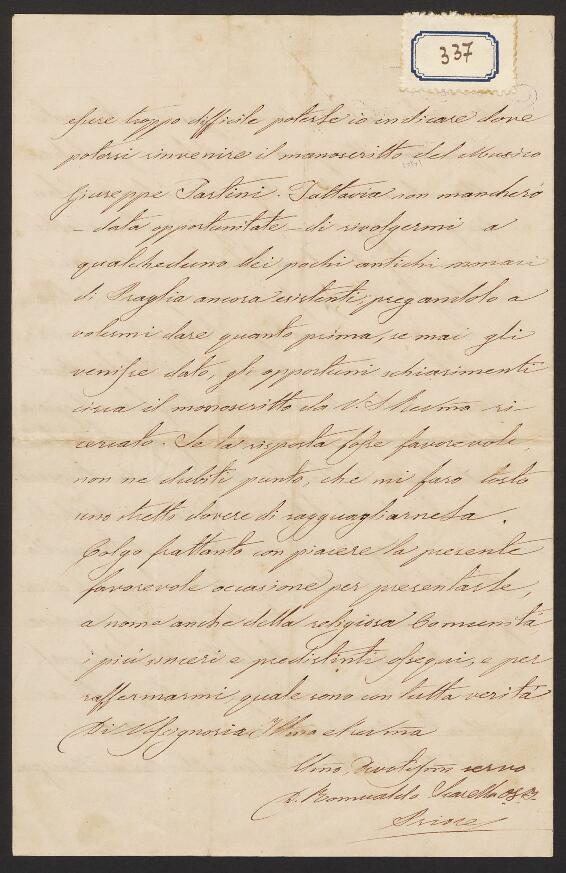 337
essere troppo difficile poterle io indicare dove
potersi rinvenire il manoscritto del Musico
Giuseppe Tartini. Tuttavia non mancherò
- data opportunitate - di rivolgermi a
qualcheduno dei pochi antichi monaci
di Praglia ancora esistenti, pregandolo a
volermi dare quanto prima, se mai gli
venisse dato, gli opportuni schiarimenti
circa il manoscritto da V. S. Revma ri
cercato. Se la risposta fosse favorevole,
non ne dubiti punto, che mi farò tosto
uno stretto dovere di ragguagliarnela.
Colgo frattanto con piacere la presente
favorevole occasione per presentarle,
a nome anche della religiosa Comunità
i più sinceri e predistinti ossequi, e per
raffermarmi, quale sono con tutta verità
Di V. Signoria Illma e Revma
Umo Devotissmo servo
D. Romualdo
Priore